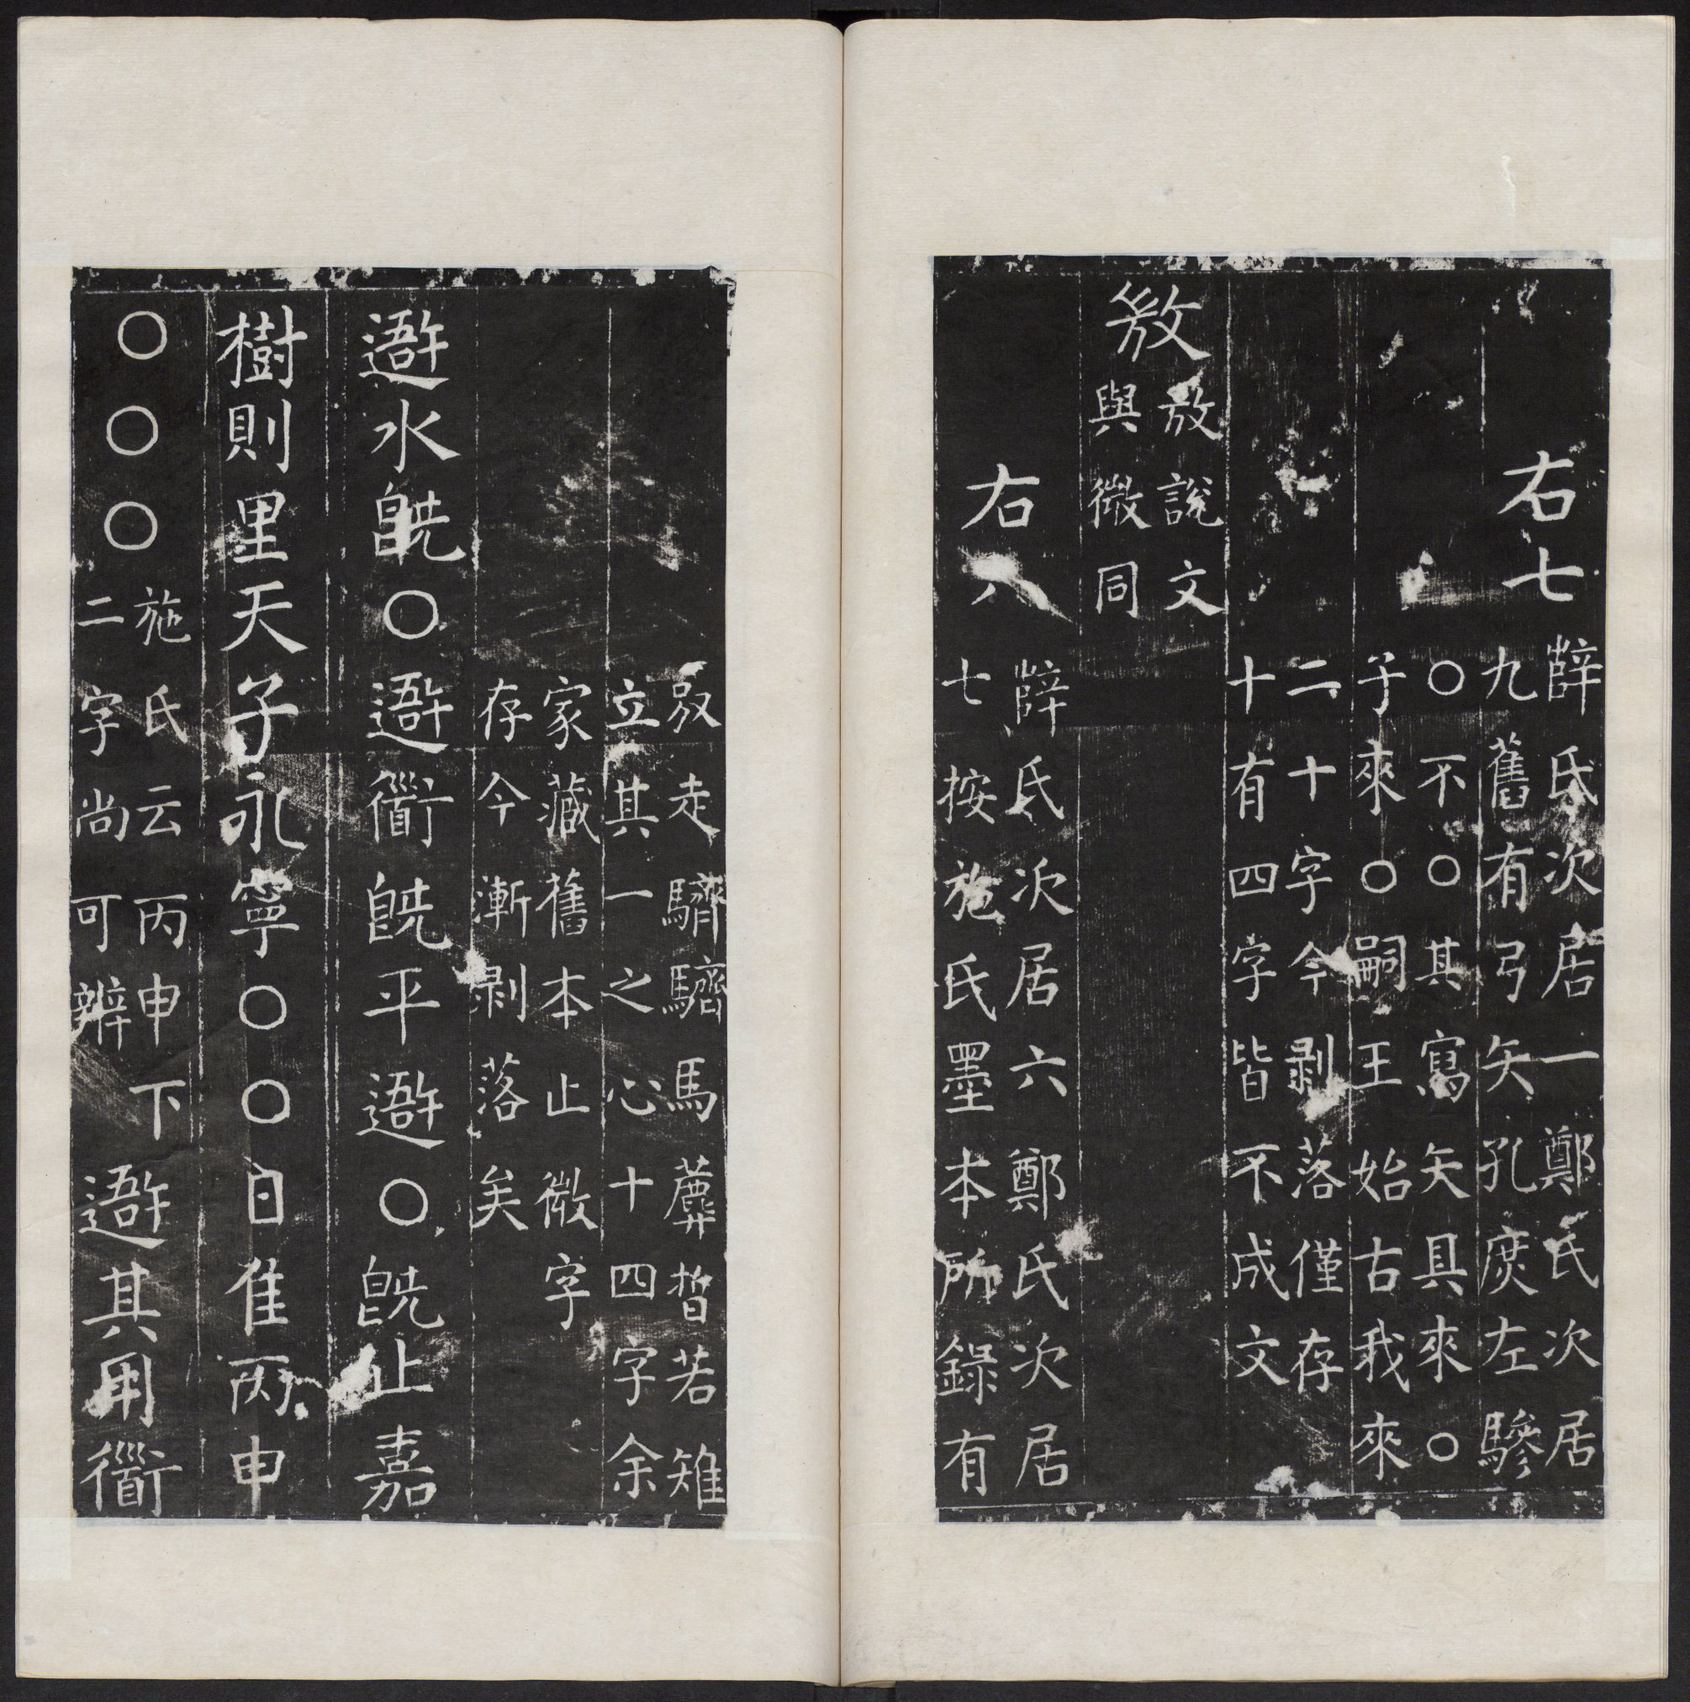 右七
薛氏次居一鄭氏次居
九舊有弓矢孔庶左驂
○不○其寫矢具來○
子來○嗣王始古我來
二十字今剥落僅存
十有四字皆不成文
𢼸
𢼸說文
與微同
右八
薛氏次居六鄭氏次居
七按施氏墨本所錄有
𢼸走驕驕馬薦晳若雉
立其一之心十四字余
家藏舊本止微字
存今漸剥落矣
𨖍水旣○𨖍衜旣平𨖍○旣止嘉
樹則里天子永寧○○日隹丙申
○○○
施氏云丙申下
二字尚可辨
𨖍其用衜